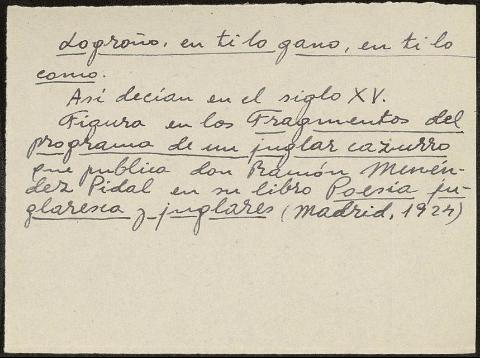 Logroño, en ti lo gano, en ti lo
como.
Así decían en el siglo XV.
Figura en los Fragmentos del
programa de un juglar cazurro
que publica don Ramón Menén-
dez Pidal en su libro Poesía ju-
glaresca y juglares (Madrid, 1924)